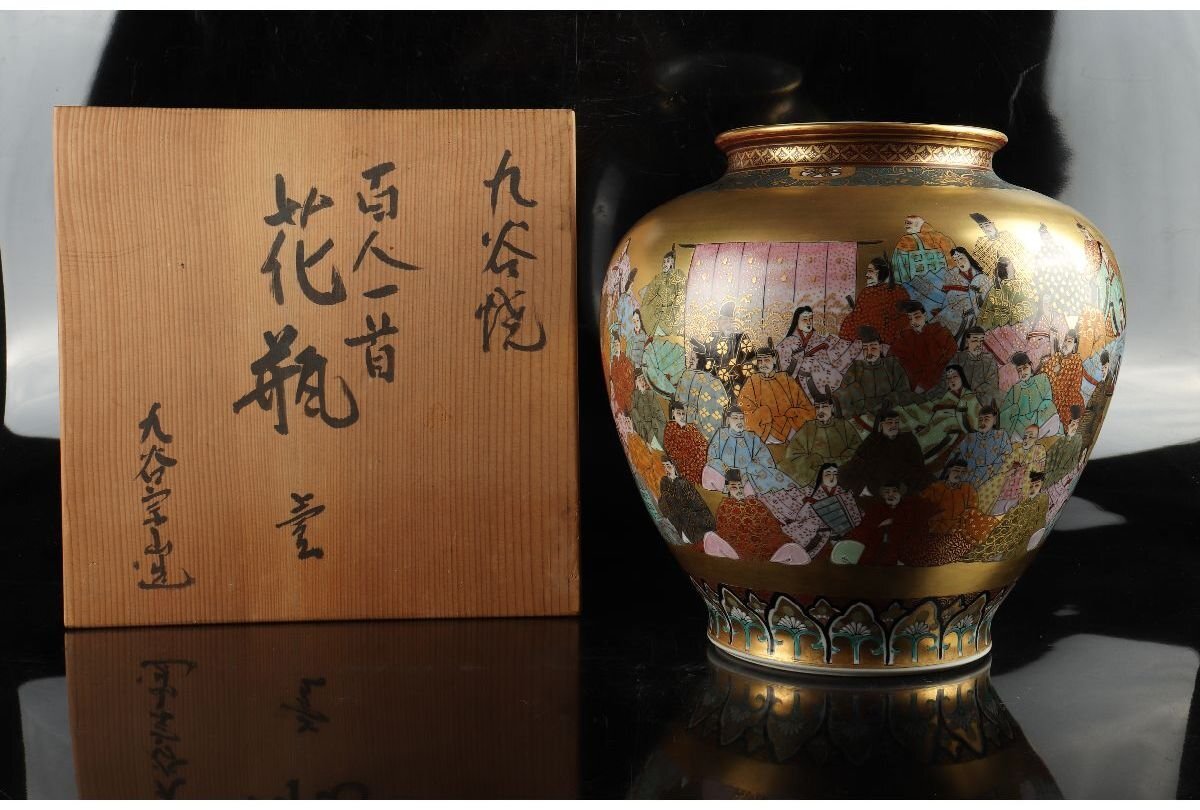 九谷焼
百人一首
花瓶 壹
九谷宗山造